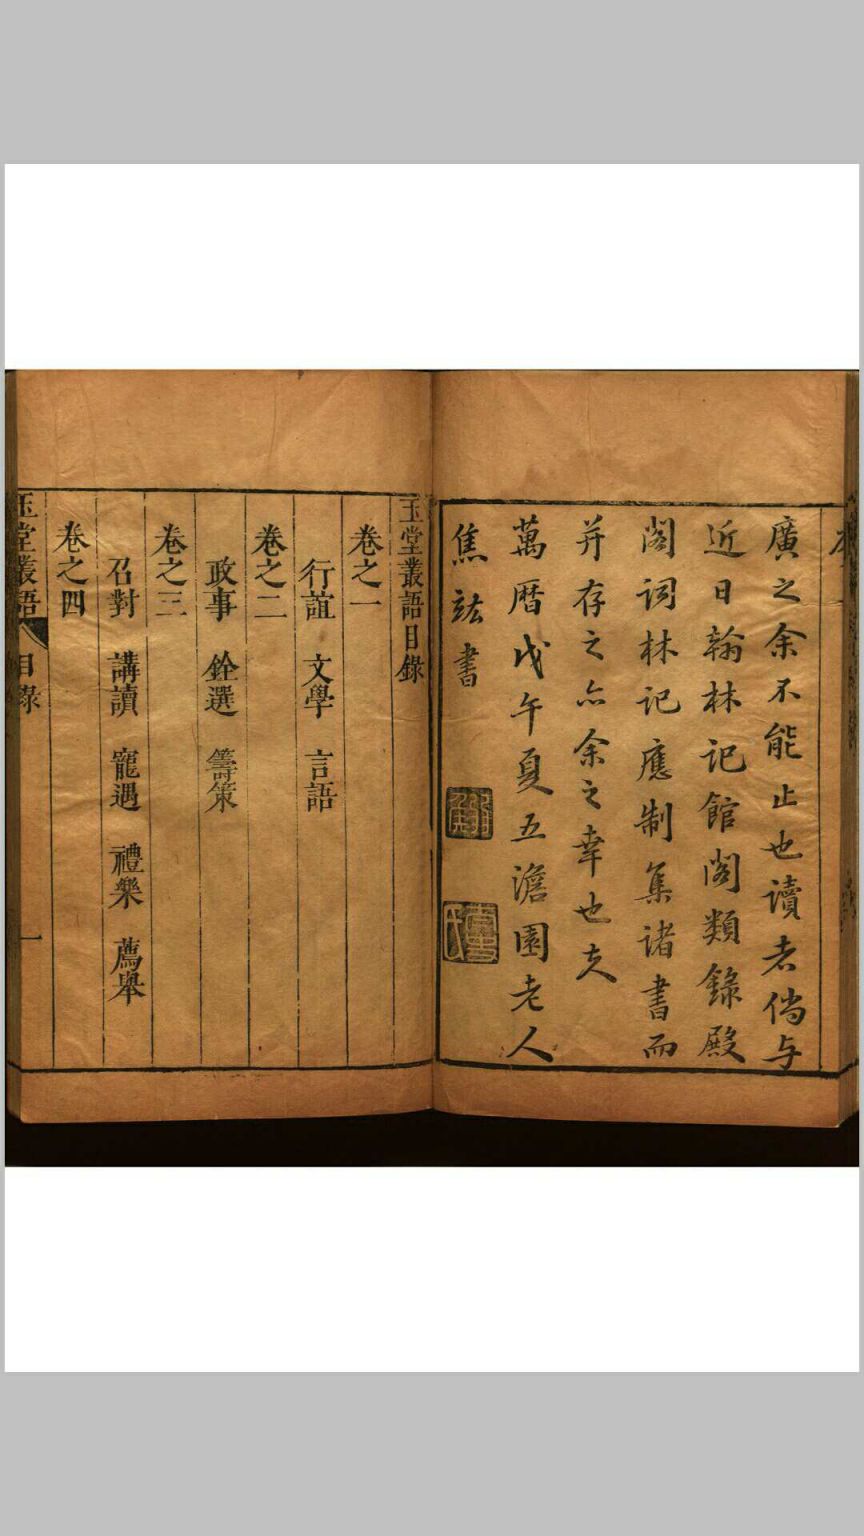 廣之余不能止也讀者倘与
近日翰林記館閣類錄殿
閣词林记應制集诸書而
并存之亦余之幸也夫
萬曆戊午夏五澹園老人
焦竑書
玉堂叢語目錄
卷之一
行誼 文學 言語
卷之二
政事 銓選 籌策
卷之三
召對 講讀 寵遇 禮樂 薦舉
卷之四
玉堂叢語 目錄 一